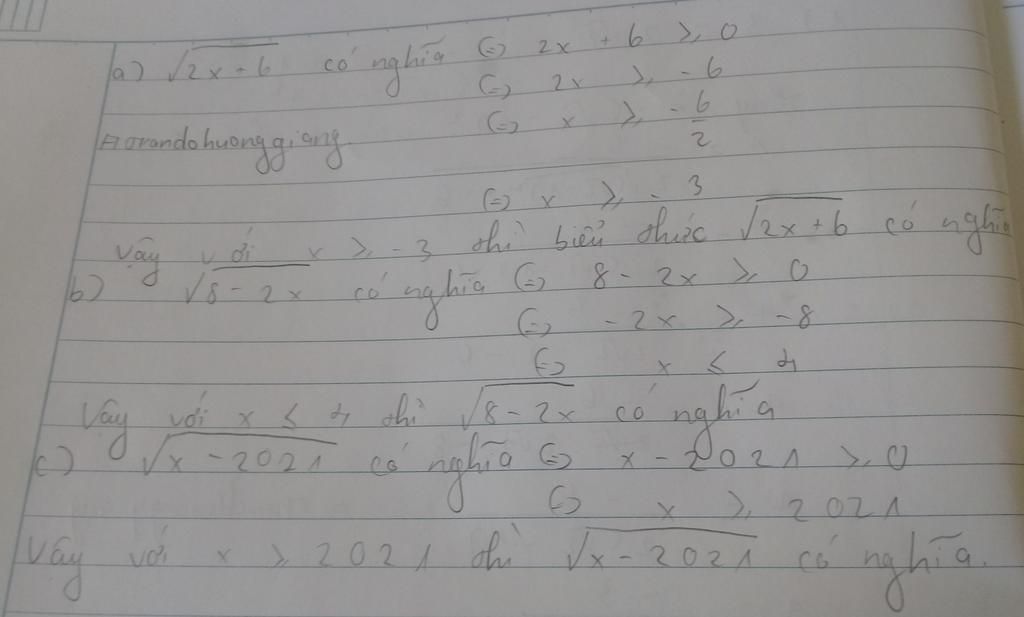 a) √2x+6 có nghĩa ⇔ 2x + 6 ≥ 0
⇔ 2x ≥ -6
⇔ x ≥ -6/2
⇔ x ≥ -3
Vậy với x ≥ -3 thì biểu thức √2x+6 có nghĩa
b) √8-2x có nghĩa ⇔ 8-2x ≥ 0
⇔ -2x ≥ -8
⇔ x ≤ 4
Vậy với x ≤ 4 thì √8-2x có nghĩa
c) √x-2021 có nghĩa ⇔ x-2021 ≥ 0
⇔ x ≥ 2021
Vậy với x ≥ 2021 thì √x-2021 có nghĩa.